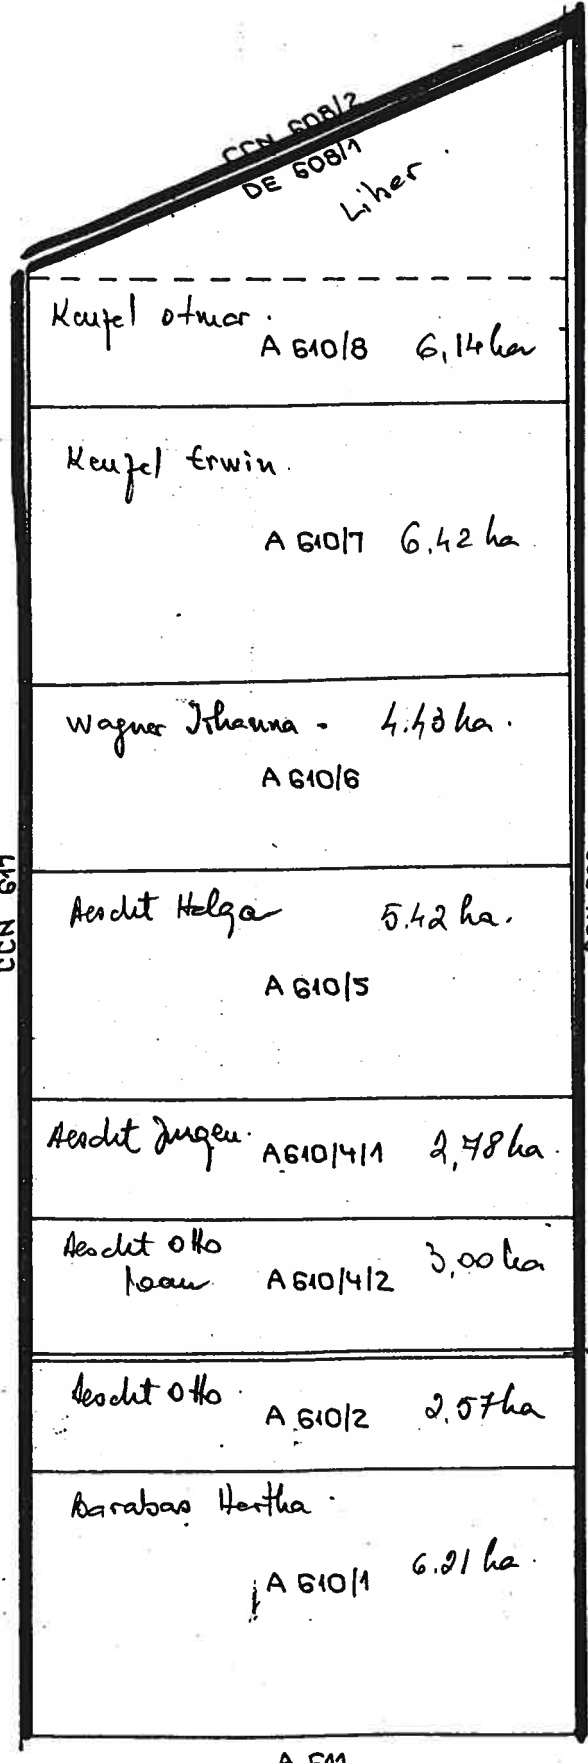 CCN 608/2
DE 608/1
Liber.
Keufel Otmar.
A 610/8 6,14 ha
Keufel Erwin.
A 610/7 6.42 ha.
Wagner Johanna - 4.43 ha.
A 610/6
CCN 617
Aescht Helga 5.42 ha.
A 610/5
Aescht Jurgen. A610/4/1 2,78 ha.
Aescht Otto 3,00 ha
Ioan A 610/4/2
Aescht Otto.
A 610/2 2.57 ha
Barabas Hertha.
A 610/1 6.21 ha.
A 611